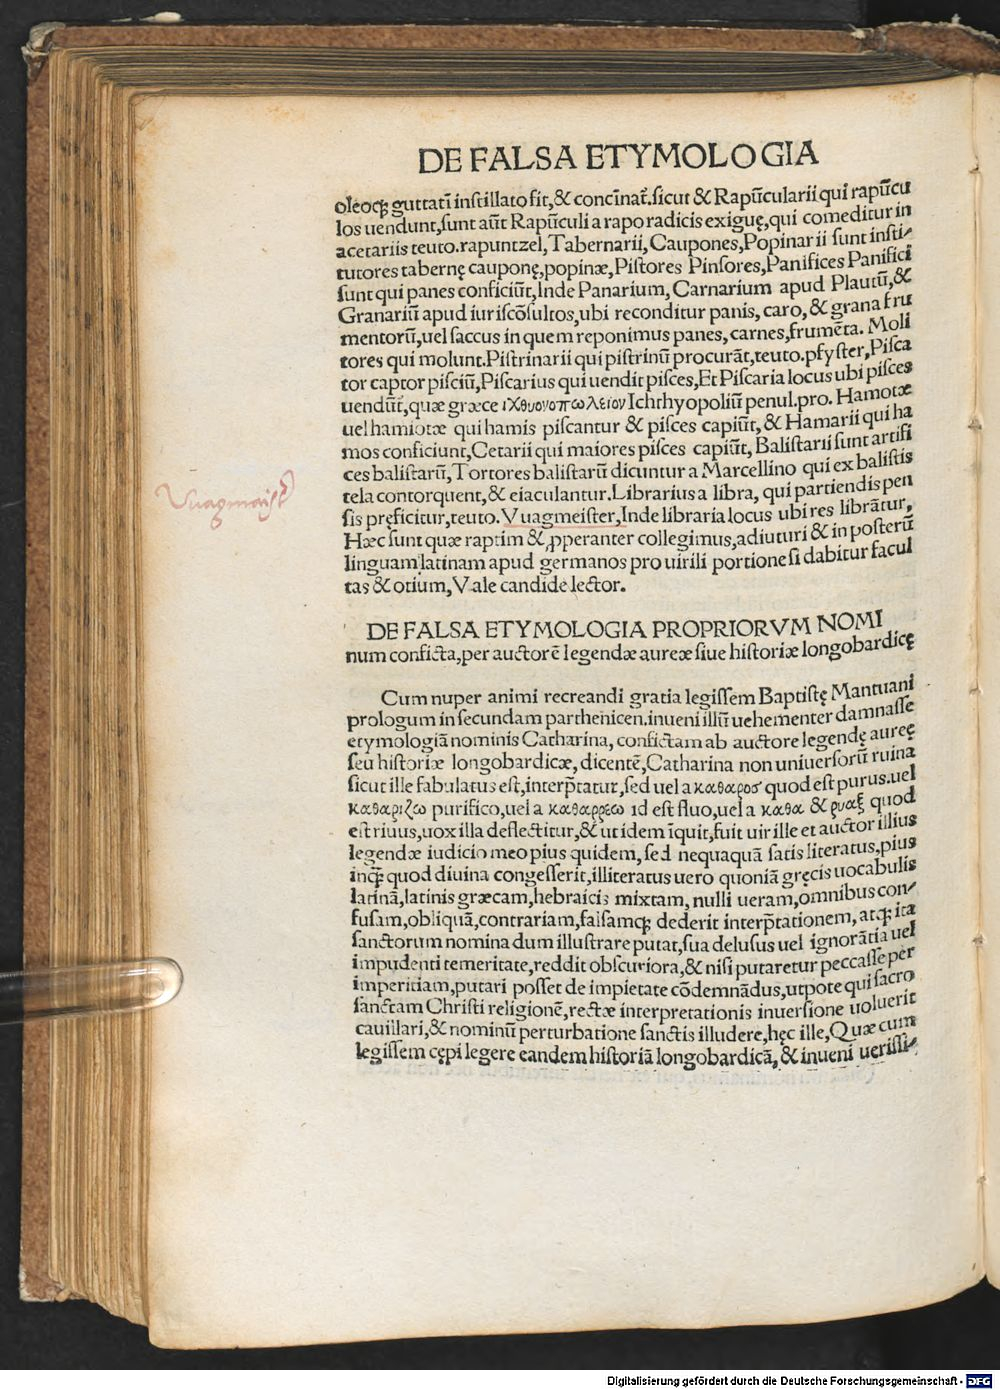 DE FALSA ETYMOLOGIA
oleoqꝫ guttatī inſtillato fit,& concīnat̄.ſicut & Rapūcularii qui rapūcu
los uendunt,ſunt aūt Rapūculi a rapo radicis exiguę,qui comeditur in
acetariis teuto.rapuntzel, Tabernarii, Caupones,Popinarii ſunt inſti-
tutores tabernę cauponę,popinæ, Piſtores Pinſores,Panifices Panifici
ſunt qui panes conficiūt,Inde Panarium, Carnarium apud Plautū,&
Granariū apud iuriſcōſultos,ubi reconditur panis, caro, & grana fru
mentorū,uel ſaccus in quem reponimus panes, carnes,frumēta. Moli
tores qui molunt.Piſtrinarii qui piſtrinū procurāt,teuto.pfyſter,Piſca
tor captor piſciū,Piſcarius qui uendit piſces,Et Piſcaria locus ubi piſces
uendūt,quæ græce ιχθυονοπωλειον Ichthyopoliū penul.pro. Hamotæ
uel hamiotæ qui hamis piſcantur & piſces capiūt,& Hamarii qui ha
mos conficiunt,Cetarii qui maiores piſces capiūt, Baliſtarii ſunt artifi
ces baliſtarū,Tortores baliſtarū dicuntur a Marcellino qui ex baliſtis
tela contorquent,& eiaculantur.Librarius a libra, qui partiendis pen
Vuagmaiſt
ſis pręficitur,teuto.Vuagmeiſter,Inde libraria locus ubi res librātur,
Hæc ſunt quæ raptim & ꝓperanter collegimus,adiuturi & in poſterū
linguam latinam apud germanos pro uirili portione ſi dabitur facul
tas & otium,Vale candide lector.
DE FALSA ETYMOLOGIA PROPRIORVM NOMI
num conficta,per auctorē legendæ aureæ ſiue hiſtoriæ longobardicę
Cum nuper animi recreandi gratia legiſſem Baptiſtę Mantuani
prologum in ſecundam parthenicen.inueni illū uehementer damnaſſe
etymologiā nominis Catharina, confictam ab auctore legendę aureę
ſeu hiſtoriæ longobardicæ, dicentē,Catharina non uniuerſorū ruina
ſicut ille fabulatus eſt,interp̄tatur,ſed uel a καθαροσ quod eſt purus.uel
καθαριζω purifico,uel a καθαρρεω id eſt fluo,uel a καθα & ρυαξ quod
eſt riuus,uox illa deflectitur,& ut idem īquit,fuit uir ille et auctor illius
legendæ iudicio meo pius quidem, ſed nequaquā ſatis literatus,pius
inqꝫ quod diuina congeſſerit,illiteratus uero quoniā gręcis uocabulis
latinā,latinis græcam,hebraicis mixtam, nulli ueram,omnibus con-
fuſam,obliquā,contrariam,falſamqꝫ dederit interp̄tationem, atqꝫ ita
ſanctorum nomina dum illuſtrare putat,ſua deluſus uel ignorātia uel
impudenti temeritate,reddit obſcuriora,& niſi putaretur peccaſſe per
imperitiam,putari poſſet de impietate cōdemnādus,utpote qui ſacro
ſanctam Chriſti religionē,rectæ interpretationis inuerſione uoluerit
cauillari,& nominū perturbatione ſanctis illudere,hęc ille,Quæ cum
legiſſem cępi legere eandem hiſtoriā longobardicā, & inueni ueriſſi-
Digitalisierung gefördert durch die Deutsche Forschungsgemeinschaft - DFG